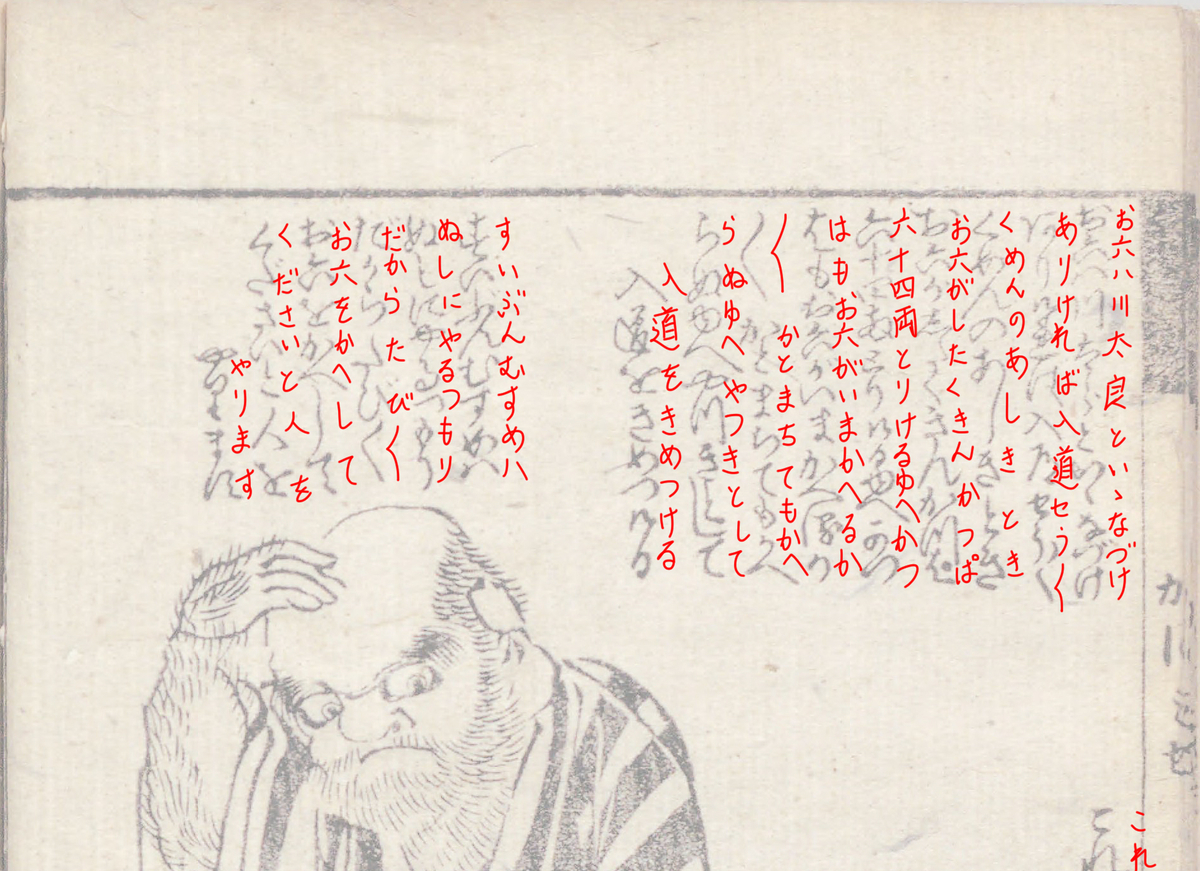 お六ハ川太良といゝなづけ
ありければ入道せう〱
くめんのあしきとき
お六がしたくきんかつぱ
六十四両とりけるゆへかつ
はもお六がいまかへるか
〱かとまちてもかへ
らぬゆへやつきとして
入道をきめつける
すいぶんむすめハ
ぬしにやるつもり
だからたび〱
お六をかへして
くださいと人を
やります
これ